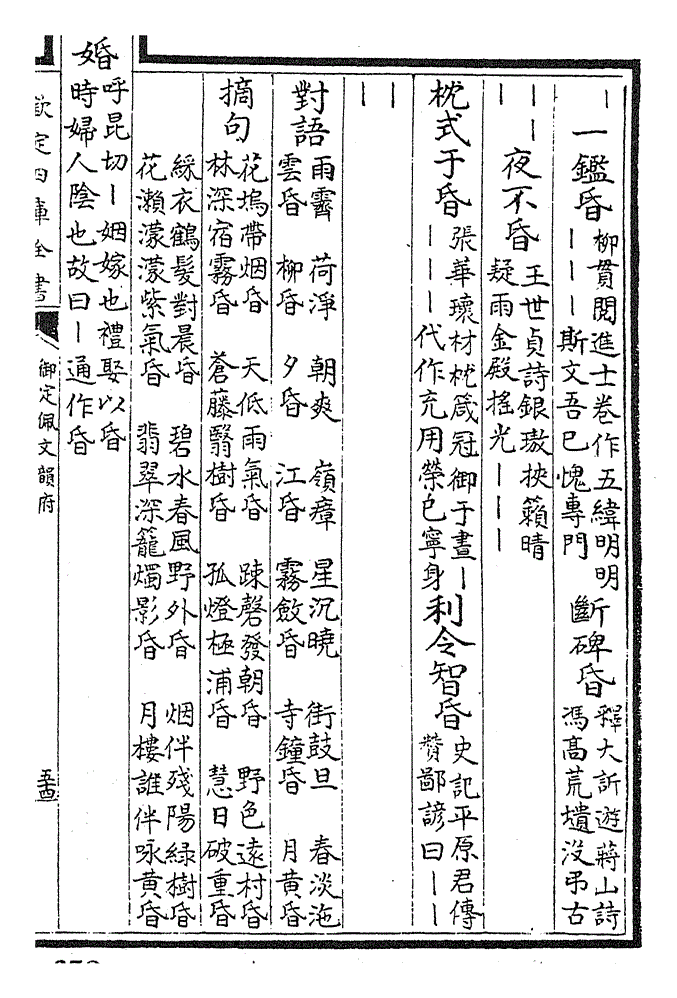 丨一鑑昏 柳貫閱進士卷作五緯明明
丨丨丨斯文吾已愧專門
斷碑昏 釋大訢遊蔣山詩
馮高荒墳没弔古
丨丨
丨
夜不昏 王世貞詩銀璈挾籟晴
疑雨金殿搖光丨丨丨
枕式于昏 張華瓌材枕箴冠御于晝丨
丨丨丨代作充用榮己寧身
利令智昏 史記平原君傳
贊鄙諺曰丨丨
丨
丨
對語 雨霽 荷淨 朝爽 嶺瘴 星沉曉 街鼓旦 春淡沲
雲昏 柳昏 夕昏 江昏 霧斂昏 寺鐘昏 月黄昏
摘句 花塢帶烟昏 天低雨氣昏 踈磬發朝昏 野色遠村昏
林深宿霧昏 蒼藤翳樹昏 孤燈極浦昏 慧日破重昏
綵衣鶴髪對晨昏 碧水春風野外昏 烟伴殘陽緑樹昏
花瀨濛濛紫氣昏 翡翠深籠燭影昏 月樓誰伴咏黄昏
婚 呼昆切丨姻嫁也禮娶以昏
時婦人陰也故曰丨通作昏
欽定四庫全書
御定佩文韻府
五十四